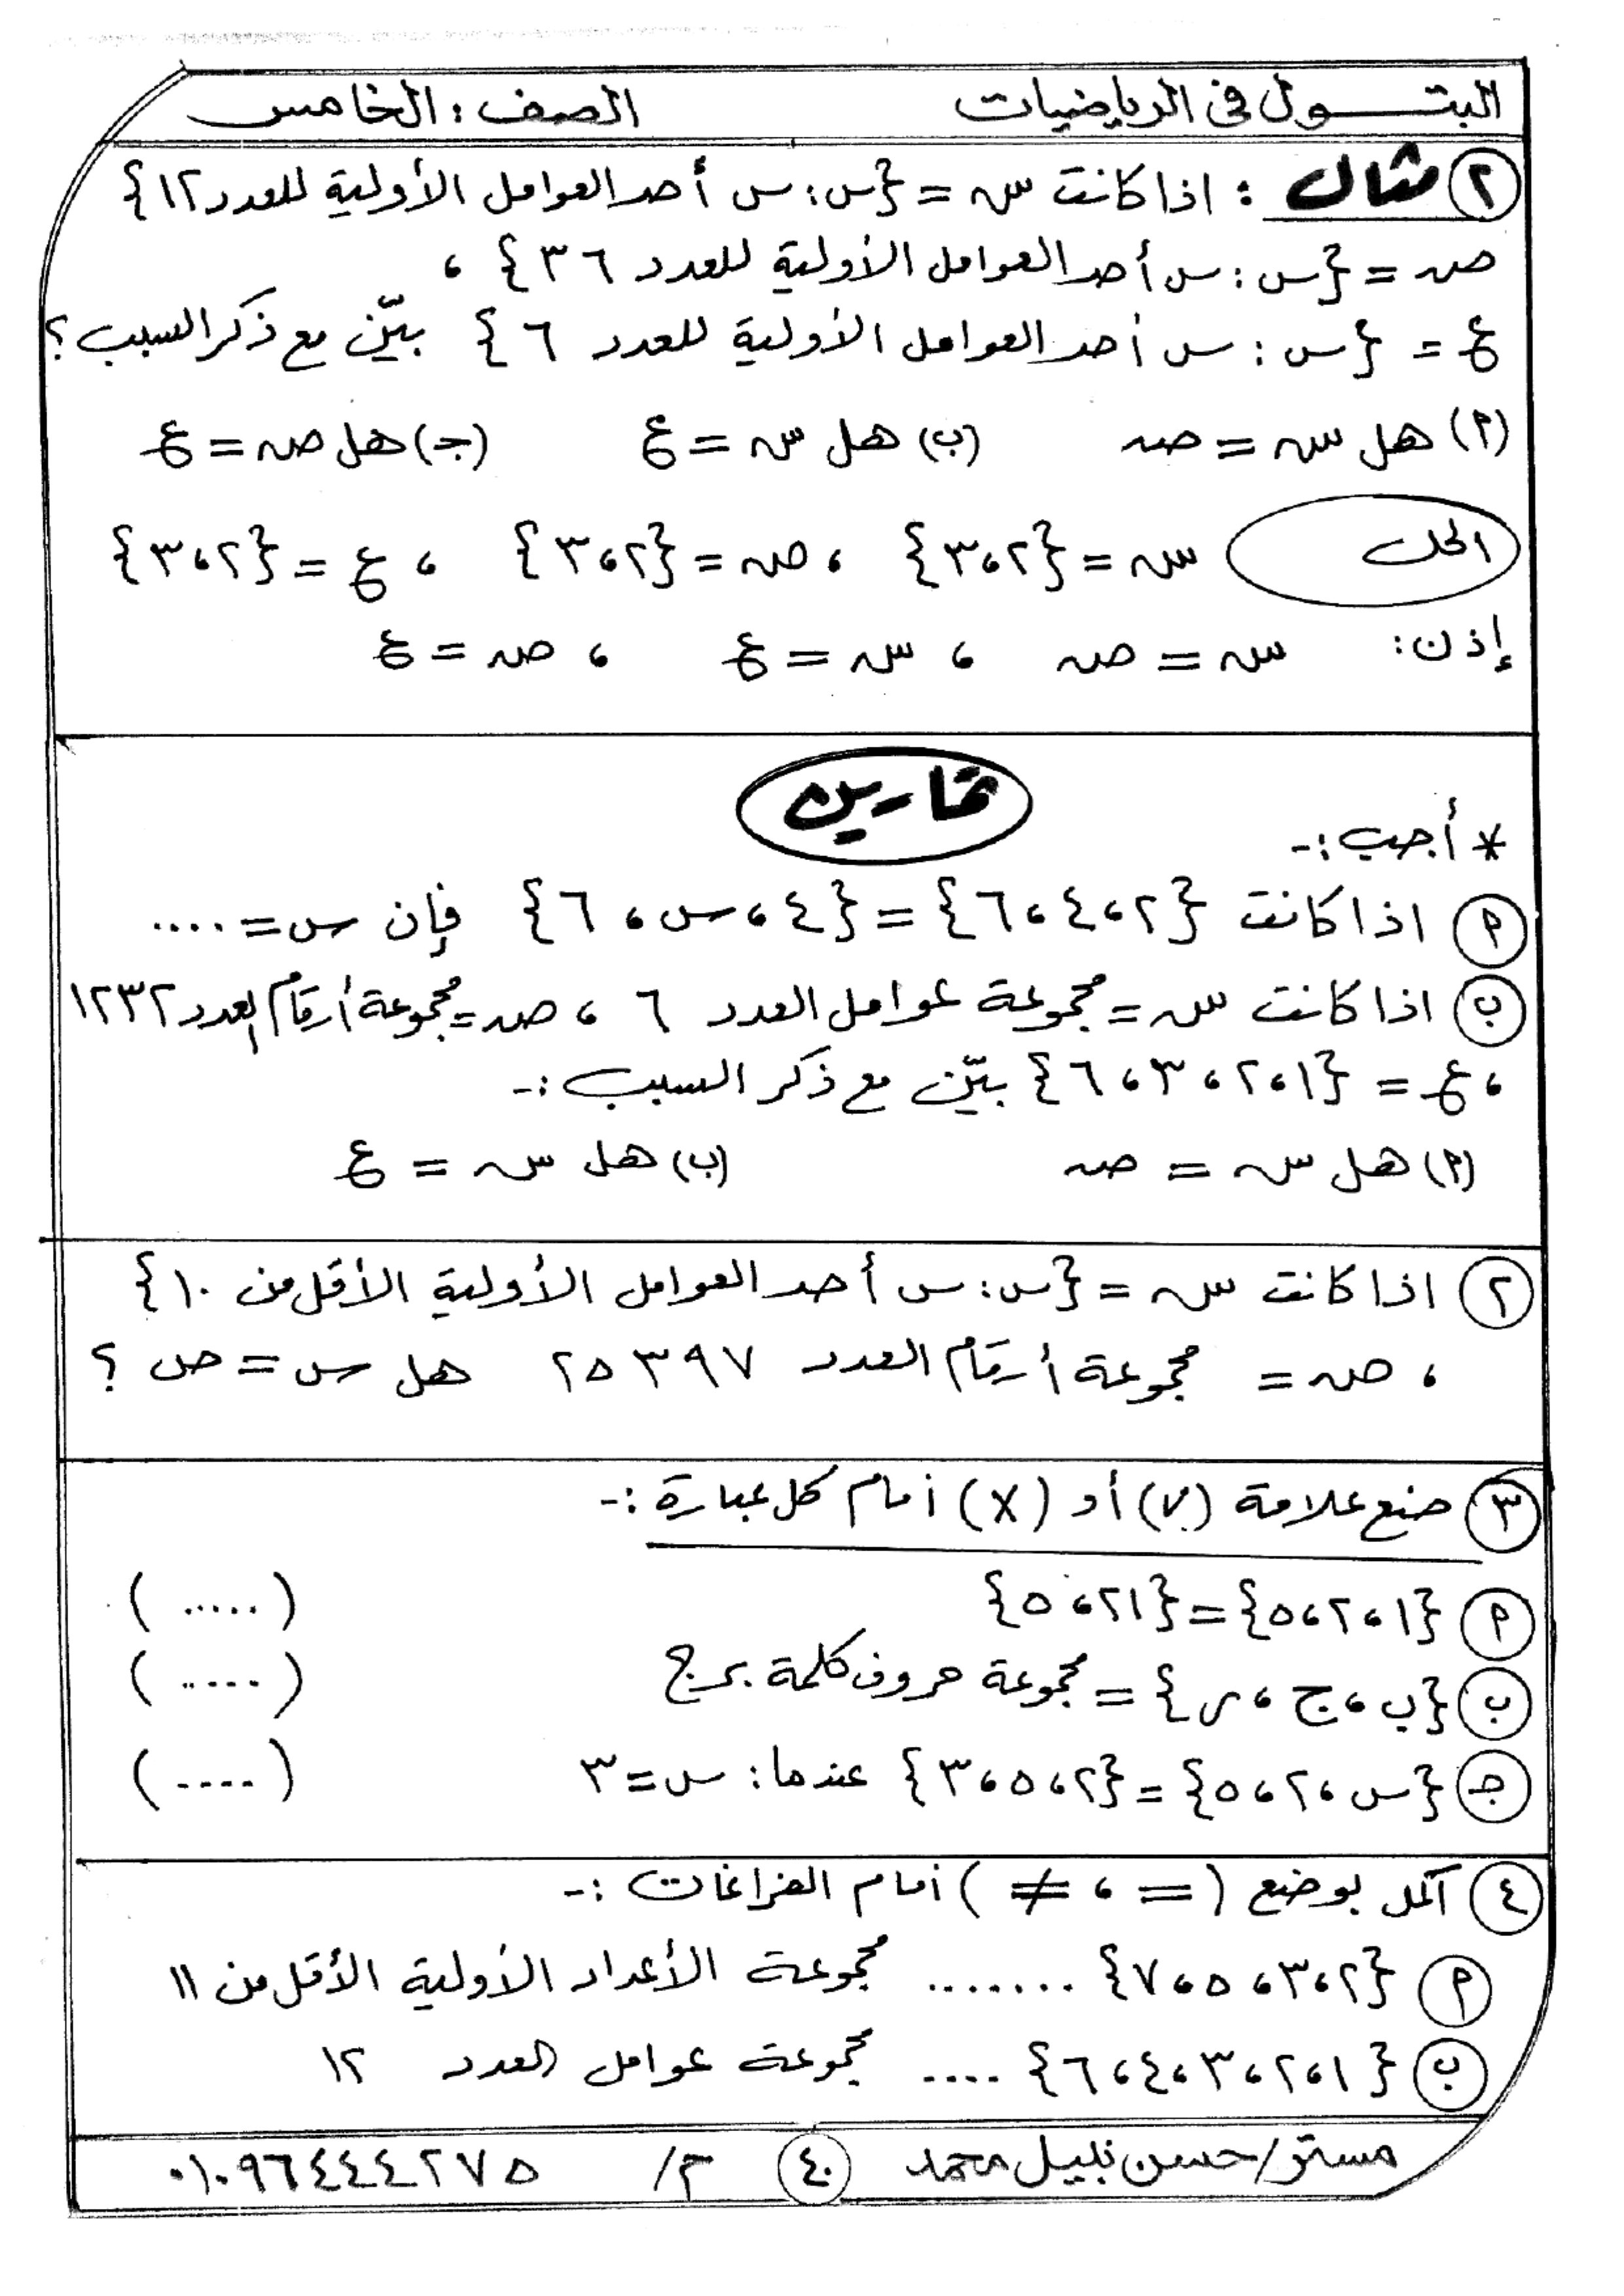 البتول في الرياضيات الصف: الخامس
٢ مثال: اذا كانت س = {س: س أحد العوامل الأولية للعدد ١٢}
ص = {س: س أحد العوامل الأولية للعدد ٣٦} ،
ع = {س: س أحد العوامل الأولية للعدد ٦} بيّن مع ذكر السبب؟
(م) هل س = ص (ب) هل س = ع (جـ) هل ص = ع
الحل س = {٢،٣} ، ص = {٢،٣} ، ع = {٢،٣}
إذن: س = ص ، س = ع ، ص = ع
تمارين
* أجب:-
م اذا كانت {٢،٤،٦} = {٤، س، ٦} فإن س = ....
ب اذا كانت س = مجموعة عوامل العدد ٦ ، ص = مجموعة أرقام العدد ١٢٣٢
، ع = {١،٢،٣،٦} بيّن مع ذكر السبب:-
(م) هل س = ص (ب) هل س = ع
٢ اذا كانت س = {س: س أحد العوامل الأولية الأقل من ١٠}
، ص = مجموعة أرقام العدد ٢٥٣٩٧ هل س = ص ؟
٣ ضع علامة (√) أو (X) أمام كل عبارة:-
م {١،٢،٥} = {٢١،٥} (.....)
ب {ب، ج، ر} = مجموعة حروف كلمة برج (.....)
جـ {س،٢،٥} = {٢،٥،٣} عندما: س = ٣ (....)
٤ أكمل بوضع (= ، ≠) أمام الفراغات:-
م {٢،٣،٥،٧} ....... مجموعة الأعداد الأولية الأقل من ١١
ب {١،٢،٣،٤،٦} .... مجموعة عوامل العدد ١٢
مستر/حسن نبيل محمد ٤٠ م/ ٠١٠٩٦٤٤٤٢٧٥